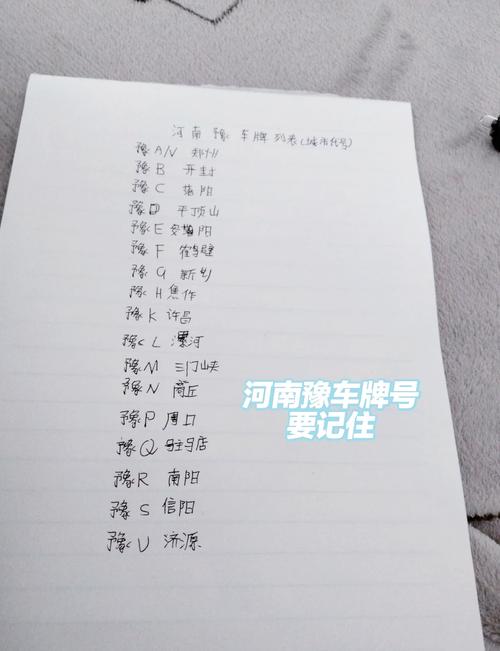 河南豫车牌列表(城市代号)
豫 A/V 郑州
豫 B 开封
豫 C 洛阳
豫 D 平顶山
豫 E 安阳
豫 F 鹤壁
豫 G 新乡
豫 H 焦作
豫 K 许昌
豫 L 漯河
豫 M 三门峡
豫 N 商丘
豫 P 周口
豫 Q 驻马店
豫 R 南阳
豫 S 信阳
豫 U 济源
河南豫车牌号
要记住